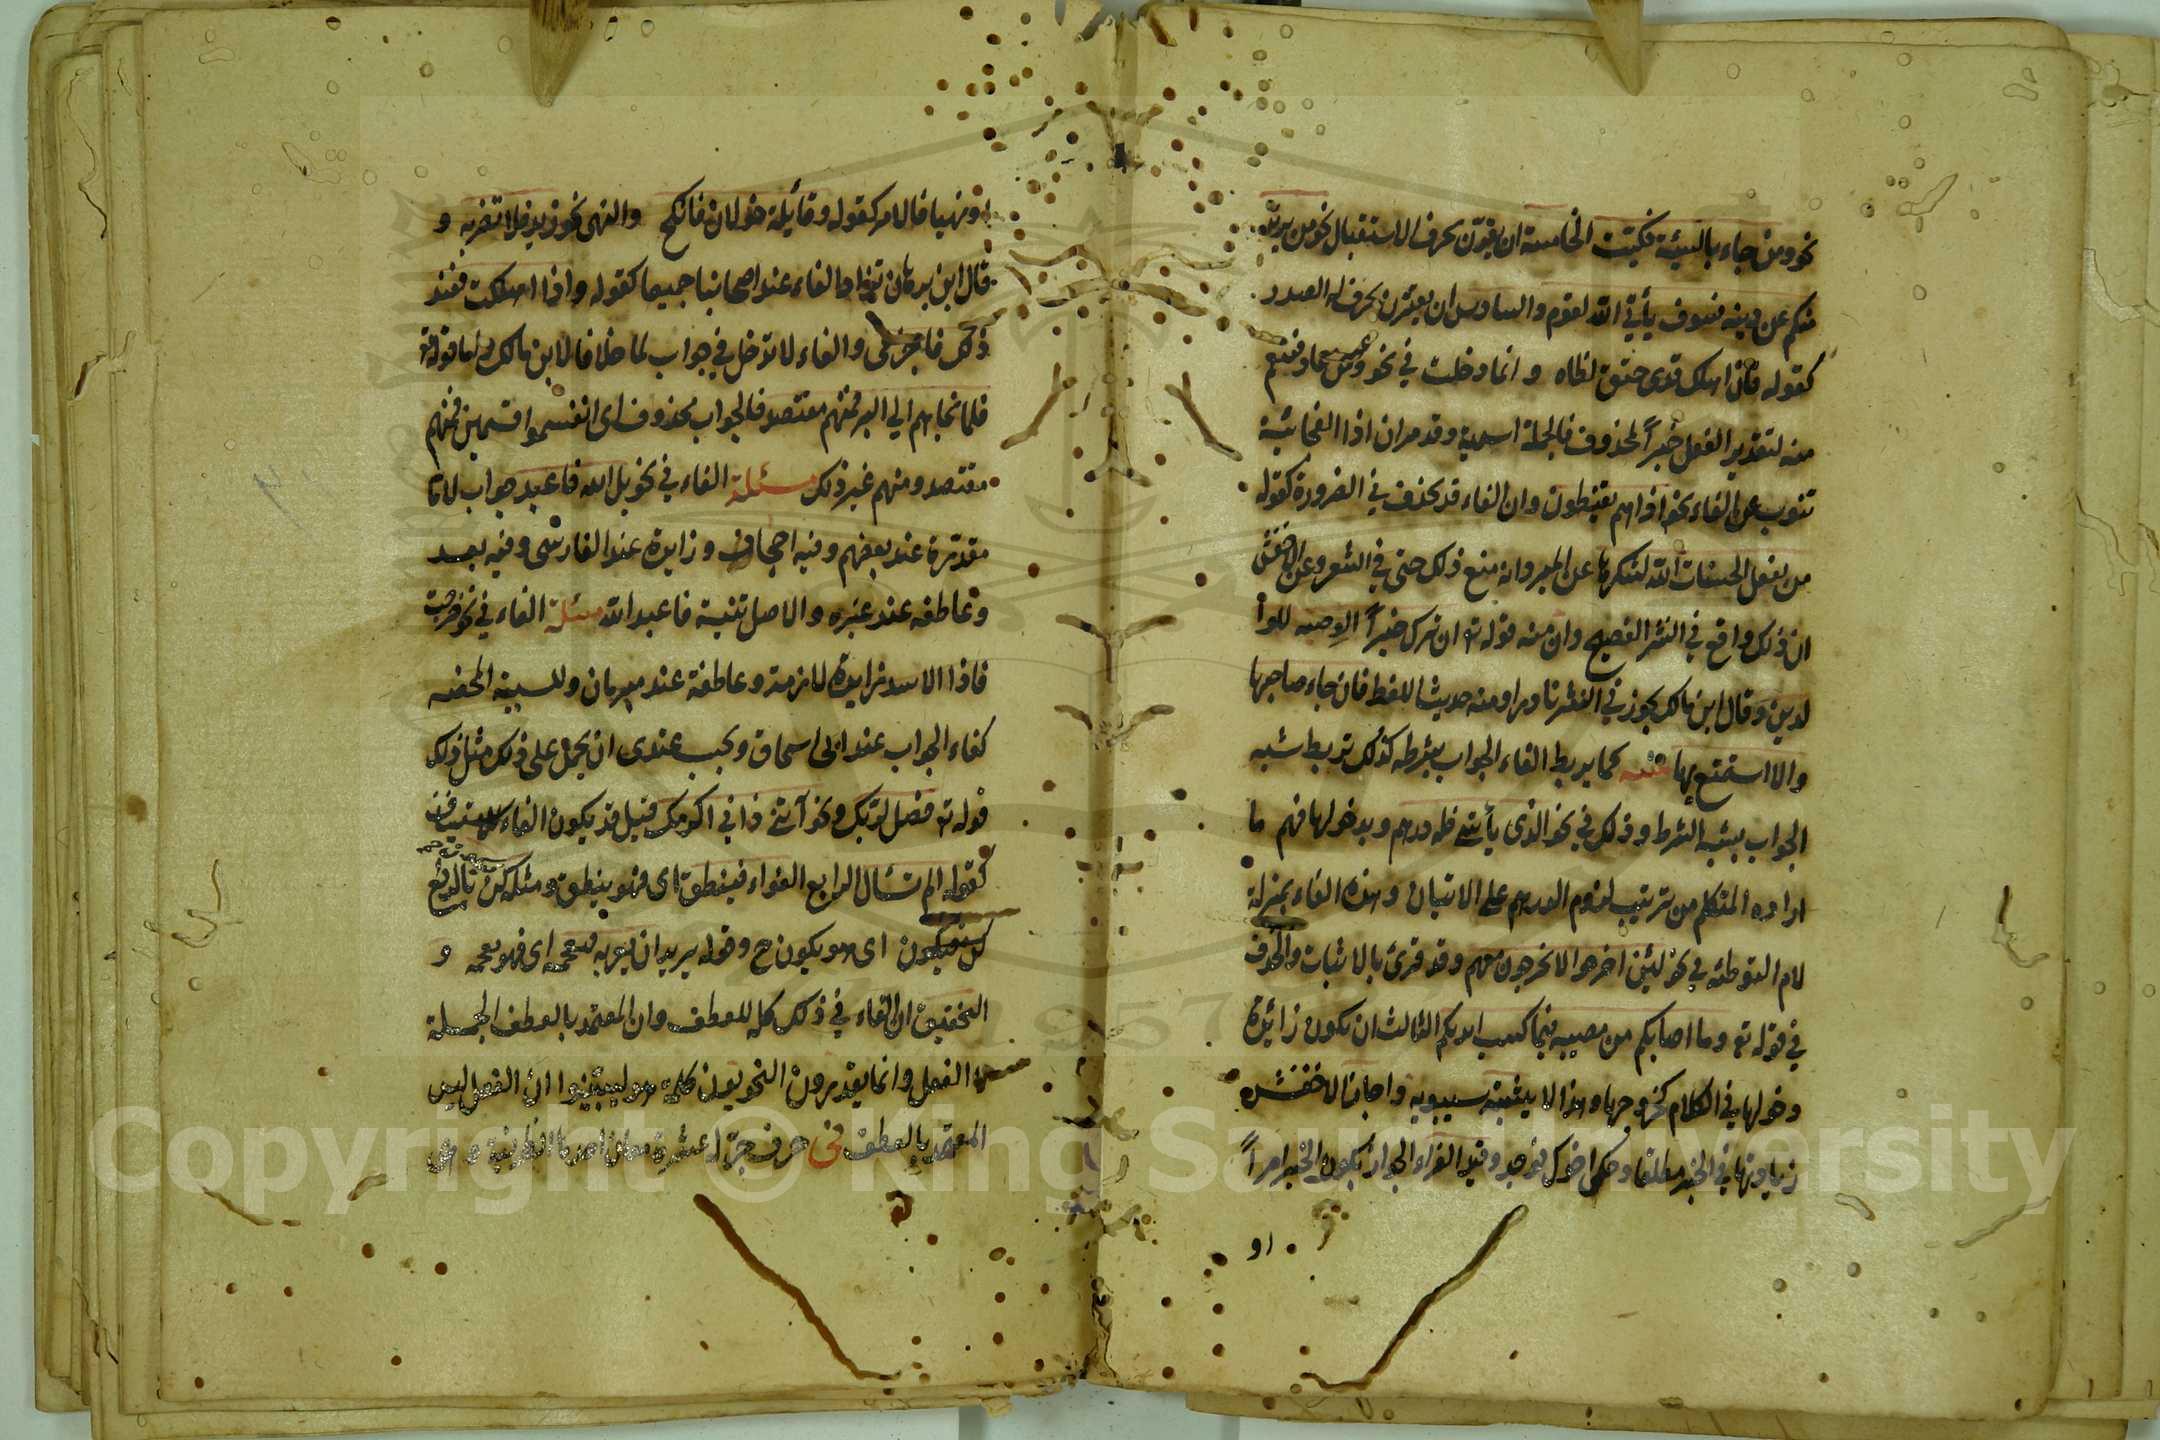 نحو ومن جاء بالسيئة فكبت الخامسة ان يقترن بحرف الاستقبال نحو من يرتد
منكم عن دينه فسوف يأتي الله لقوم والسادس ان يقترن بحرف له الصدر
كقوله فان اهلك فذى حنق لظاه وانما دخلت في نحو ومن عاد فينتقم
منه لتقدير الفعل خبراً لمحذوف فالجملة اسمية وقد مر ان اذا الفجائية
تنوب عن الفاء نحو اذا هم يقنطون وان الفاء قد تحذف في الضرورة كقوله
من يفعل الحسنات الله يشكرها عن المبرد انه منع ذلك حتى في الشعر وعن الاخفش
ان ذلك واقع في النثر الفصيح وان منه قوله تع ان ترك خيراً الوصية للوا
لدين وقال ابن مالك يجوز في النثر نادرا ومنه حديث اللقطة فان جاء صاحبها
والا استمتع بها تنبيه كما يربط الفاء الجواب بشرطه كذلك تربط شبه
الجواب بشبه الشرط وذلك في نحو الذي يأتيني فله درهم وبدخولها فهم ما
اراده المتكلم من ترتيب لزوم الدرهم على الاتيان وهذه الفاء بمنزلة
لام التوطئة في نحو لئن اخرجوا لا يخرجون معهم وقد قرئ بالاثبات والحذف
في قوله تع وما اصابكم من مصيبة فبما كسبت ايديكم الثالث ان يكون زائدة
دخولها في الكلام كخروجها وهذا لا يثبته سيبويه واجاز الاخفش
زيادتها في الخبر مطلقا وحكى اخوك فوجد وقيد الفراء الجواز بكون الخبر امراً
او
او نهيا فالامر كقوله وقائلة خولان فانكح والنهى نحو زيد فلا تضربه و
قال ابن برهان تزاد الفاء عند اصحابنا جميعا كقوله واذا اهلكت فعند
ذلك فاجزعى والفاء لا تدخل في جواب لما خلافا لابن مالك واما قوله تع
فلما نجاهم الى البر فمنهم مقتصد فالجواب محذوف اى انقسموا قسمين فمنهم
مقتصد ومنهم غير ذلك مسئلة الفاء في نحو بل الله فاعبد جواب لاما
مقدرة عند بعضهم وفيه اجحاف وزايدة عند الفارسى وفيه بعد
وعاطفه عند غيره والاصل تنبه فاعبد الله مسئلة الفاء في نحو خرجت
فاذا الاسد زايدة لازمة وعاطفة عند مبرمان وللسببية المحضه
كفاء الجواب عند ابى اسحاق ويجب عندى ان يحمل على ذلك مثل ذلك
قوله تع فصل لربك ونحو آتنى فانى اكرمك قيل قد يكون الفاء للاستيناف
كقوله الم تسأل الرابع القواء فينطق اى فهو ينطق ومثله كن بالرفع
كن فيكون اى هو يكون ح وقوله يريد ان يعربه فيعجمه اى فهو يعجمه و
التحقيق ان الفاء في ذلك كله للعطف وان المعتمد بالعطف الجملة
الفعل وانما يقدرون النحويون كلمة هو ليبينوا ان الفعل ليس
المعتمد بالعطف فى حرف جر له عشرة معان احدها الظرفية وهى